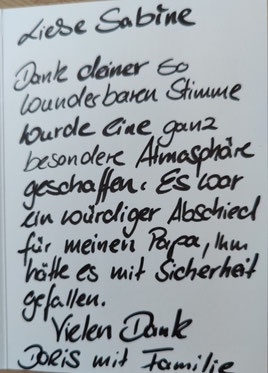 Liebe Sabine
Dank deiner so
wunderbaren Stimme
wurde eine ganz
besondere Atmosphäre
geschaffen. Es war
ein würdiger Abschied
für meinen Papa, Ihm
hätte es mit Sicherheit
gefallen.
Vielen Dank
DORIS mit Familie